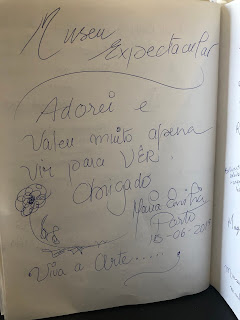 Museu
Expectacular
Adorei e
Valeu muito apena
vir para VÊR.
Obrigado
Maria
Porto
Viva a Arte.....